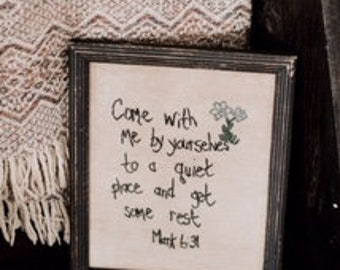 Come with
me by yourselves
to a quiet
place and get
some rest
Mark 6:31